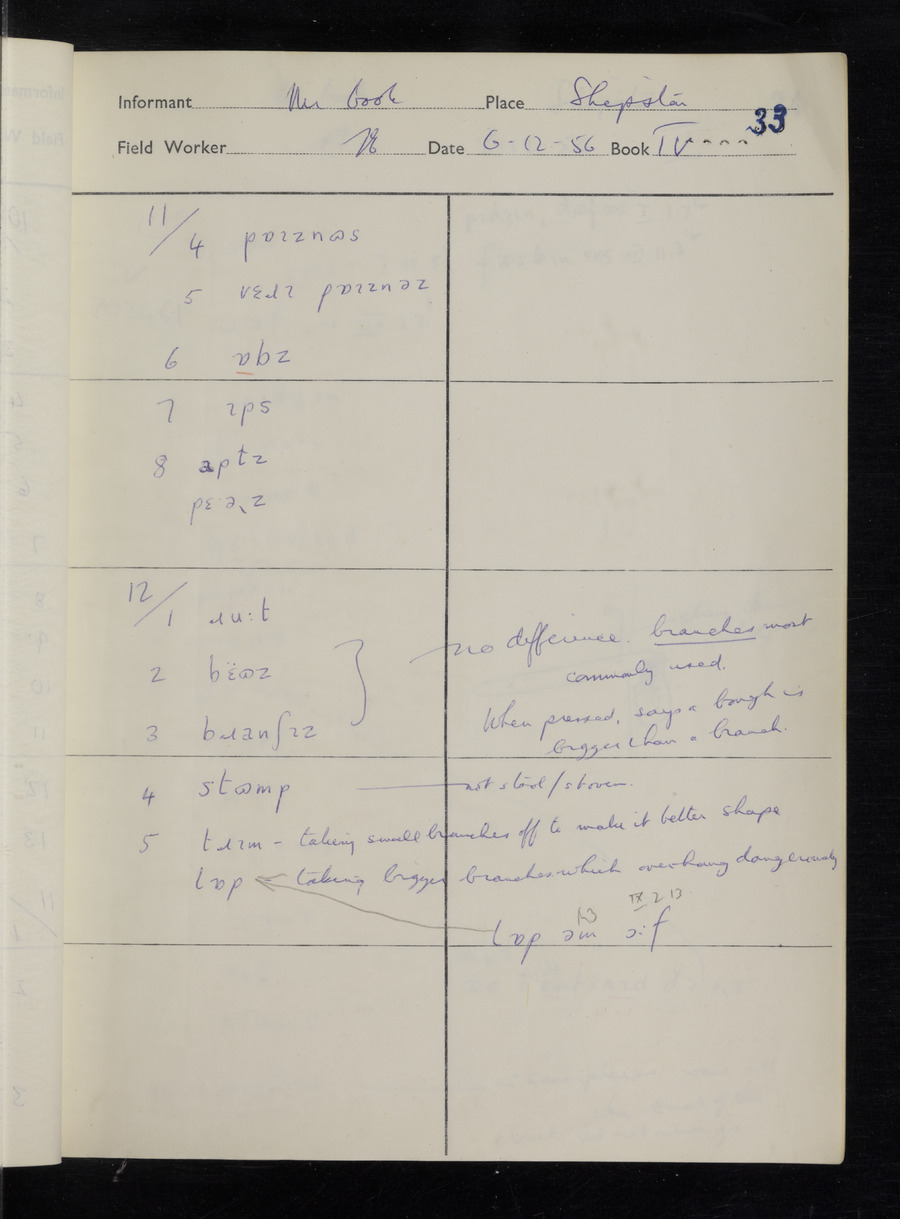 Informant Mr Cook Place Shepston
Field Worker Date 6-12-56 Book IV 33
11/4 pɑɪzn̩ɷs
5
6 ɑgz
7 ɪps
8
12/1 ɹu:t
2 bëɷz
3 bɹanʃɪz
no difference. branches most
commonly used.
When pressed, says a bough is
bigger than a branch.
4 stɷmp not stool/stoven.
5 tɹɪm – taking small branches off to make it better shape
lɒp – taking bigger branches which overhang dangerously
IX 2 13
lɒp əm ɔ:f